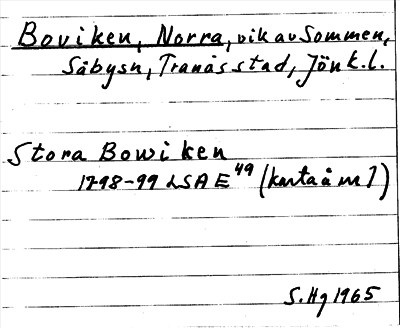 Boviken, Norra, vik av Sommen,
Säbysn, Tranås stad, Jönk.l.
Stora Bowiken
1798-99 LSA E 49 (karta å m 1)
S. Hg 1965